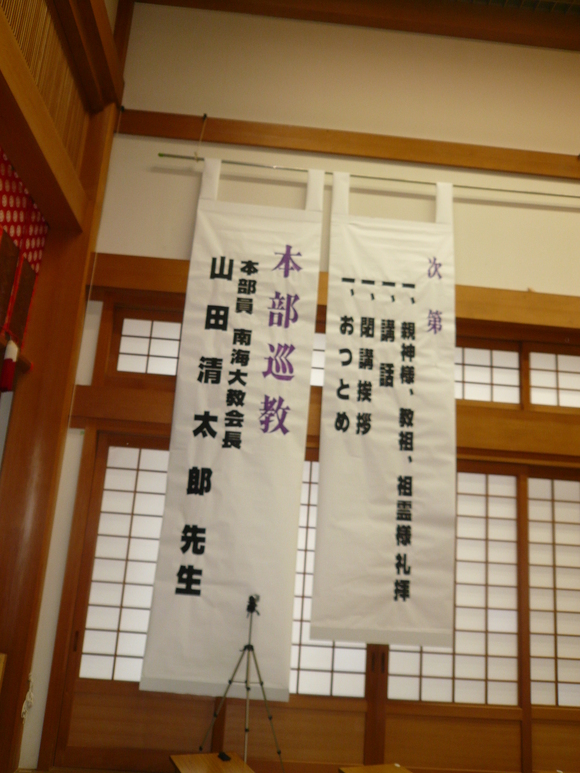 次第
一、親神様、教祖、祖霊様礼拝
一、講話
一、閉講挨拶
一、おつとめ
本部巡教
本部員 南海大教会長
山田清太郎先生